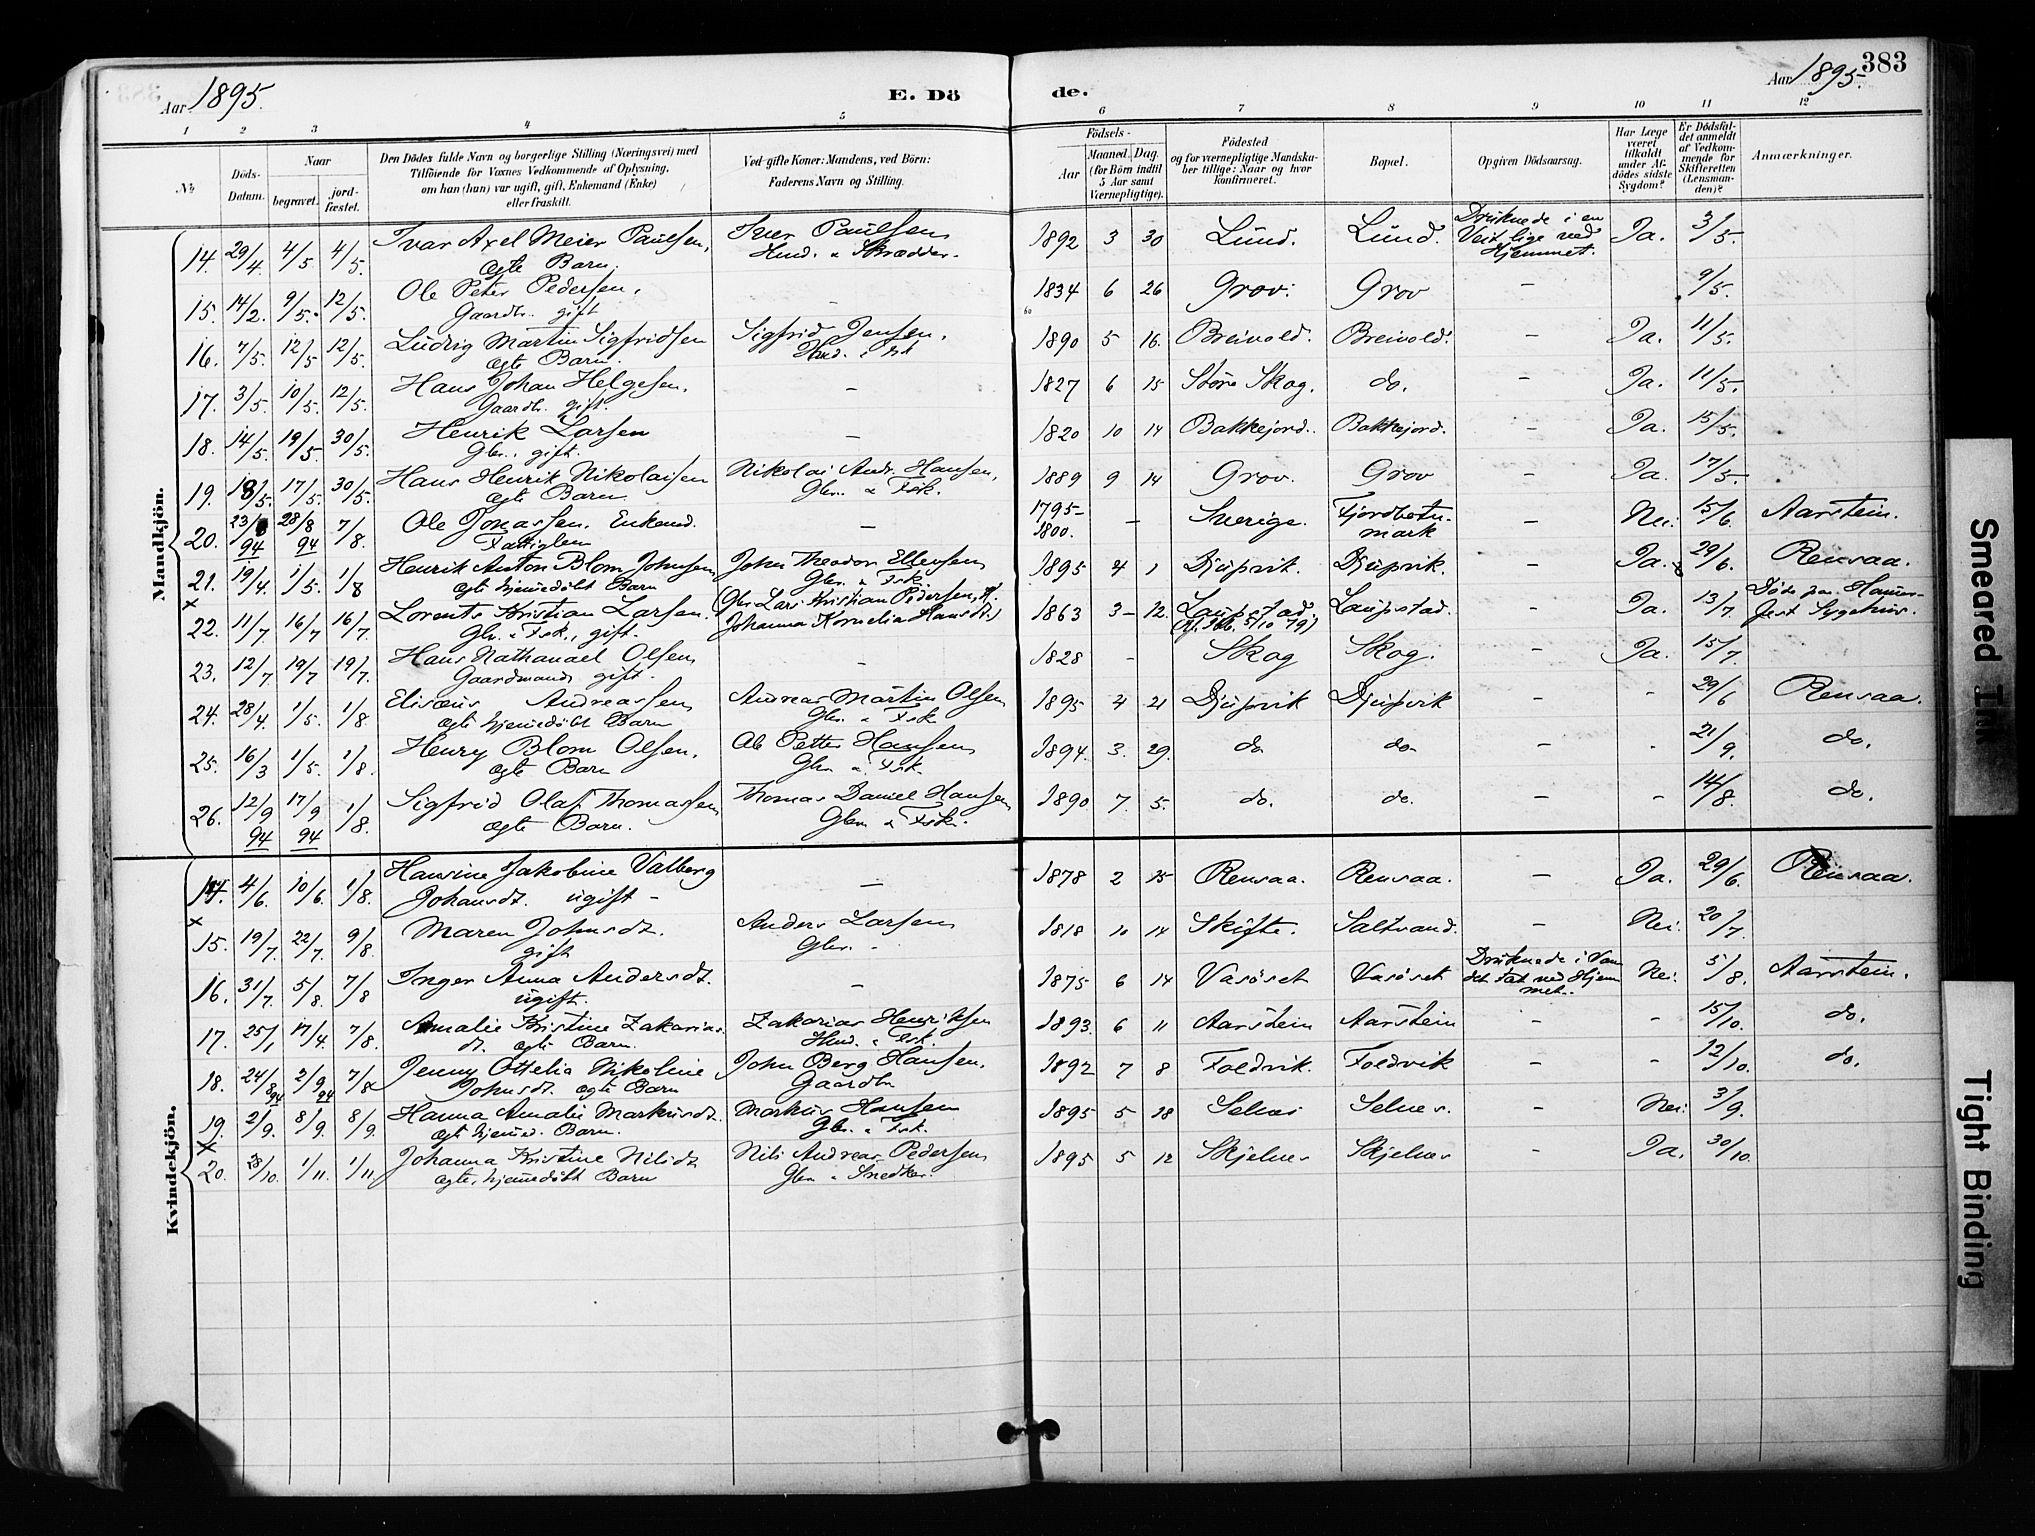 Aar 1895.
E. Dö
de.
Aar 1895.
383
1 2 3 4 5 6 7 8 9 10 11 12
No
Döds-Datum.
Naar
begravet.
jord-fæstet.
Den Dödes fulde Navn og borgerlige Stilling (Næringsvei) med
Tilföiende for Voxnes Vedkommende af Oplysning,
om han (hun) var ugift, gift, Enkemand (Enke)
eller fraskilt.
Ved gifte Koner: Mandens, ved Börn:
Faderens Navn og Stilling.
Födsels-
Aar
Maaned. Dag.
(for Börn indtil
5 Aar samt
Værnepligtige).
Födested
og for værnepligtige Mandska-
ber tillige: Naar og hvor
Konfirmeret.
Bopæl.
Opgiven Dödsaarsag.
Har Læge
været
tilkaldt
under Af-
dödes sidste
Sygdom?
Er Dödsfal-
det anmeldt
af Vedkom-
mende for
Skifteretten
(Lensman-
den)?
Anmærkninger.
Mandkjön.
14. 29/4. 4/5 4/5. Ivar Axel Meier Paulsen, Iver Paulsen 1892 3 30 Lund. Lund. Druknede i en Ja. 3/5.
ægte Barn. Hmd. & Skrædder. Veit lige ved
Hjemmet.
15. 14/2. 9/5. 12/5. Ole Peter Pedersen, – 1834 6 26 Grov. Grov – 9/5.
Gaardbr. gift
16. 7/5. 12/5 12/5. Ludvig Martin Sigfridsen Sigfrid Jensen, 1890 5 16. Breivold. Breivold. – Ja. 11/5.
ægte Barn. Hmd. & Fsk
17. 3/5. 10/5. 12/5. Hans Johan Helgesen. – 1827 6 15 Store Skog. do. – Ja. 11/5.
Gaardbr. gift.
18. 14/5. 19/5 30/5. Henrik Larsen – 1820 10 14 Bakkejord. Bakkejord. – Ja. 15/5.
Gbr., gift.
19. 13/5. 17/5. 30/5. Hans Henrik Nikolaisen Nikolai Andr. Hansen, 1889 9 14 Grov. Grov – Ja. 17/5.
ægte Barn Gbr. & Fsk.
20. 23/8 94 28/8 94 7/8. Ole Jonassen. Enkemd. – 1795–1800. – Sverige. Fjordbotn- – Nei. 15/6. Aarstein.
Fattiglem mark
21. 19/4. 1/5. 1/8 Henrik Anton Blom Johnsen John Theodor Ellevsen 1895 4 1 Djupvik. Djupvik. – Ja. 29/6. Rensaa.
ægte hjemmedøbt Barn Gbr. & Fsk
x
22. 11/7 16/7 16/7. Lorents Kristian Larsen. (Gbr. Lars Kristian Pedersen, & 1863 3 – 12. Laupstad. Laupstad. – Ja. 13/7. Døde paa Hammer-
Gbr. & Fsk., gift. Johanna Kornelia Hansdt.) 5/10 79) fest Sygehus.
23. 12/7 19/7 19/7. Hans Nathanael Olsen – 1828 – Skog Skog. – Ja. 15/7.
Gaardmand, gift.
24. 28/4. 1/5. 1/8. Elisæus Andreassen Andreas Martin Olsen 1895 4 21 Djupvik Djupvik – - 29/6 Rensaa.
ægte hjemmedøbt Barn Gbr. & Fsk
25. 16/3 1/5. 1/8. Henry Blom Olsen. Ole Petter Hansen 1894. 3. 29. do do – - 21/9. do.
ægte Barn Gbr. & Fsk.
26. 12/9 94 17/9 94 1/8. Sigfrid Olaf Thomassen Thomas Daniel Hansen 1890 7. 5. do. do. – – 14/8. do.
ægte Barn. Gbr & Fsk.
Kvindekjön.
14. 4/6. 10/6. 1/8. Hansine Jakobine Valberg – 1878 2 15 Rensaa. Rensaa. – Ja. 29/6. Rensaa.
Johansdt. ugift –
x
15. 19/7. 22/7. 9/8. Maren Johnsdt. Anders Larsen 1818 10 14 Skifte. Saltvand. – Nei. 20/7.
gift Gbr. –
16. 31/7. 5/8. 7/8 Inger Anna Andersdt. – 1875 6 14 Vasöset Vasöset Druknede i Van- Nei. 5/8. Aarstein.
ugift. det tæt ved Hjem-
met.
17. 25/1 17/4. 7/8. Amalie Kristine Zakarias- Zakarias Henriksen 1893. 6 11 Aarstein Aarstein – - 15/10. do.
dt. ægte Barn. Hmd. & Fsk.
18. 24/8 94 2/9 94 7/8 Jenny Ottelia Nikoline John Berg Hansen, 1892 7 8 Foldvik. Foldvik – - 12/10. do.
Johnsdt. ægte Barn Gaardbr
19. 2/9. 8/9. 8/9. Hanna Amalie Markusdt. Markus Hansen 1895 5 18 Selnes Selnes. – Nei. 3/9.
ægte hjemmed. Barn. Gbr. & Fsk.
x
20. 23/10. 1/11. 1/11. Johanna Kristine Nilsdt Nils Andreas Pedersen 1895 5 12 Skjelnes Skjelnes – Ja. 30/10.
ægte, hjemmedøbt Barn Gbr & Snedker.
Smeared Ink
Tight Binding